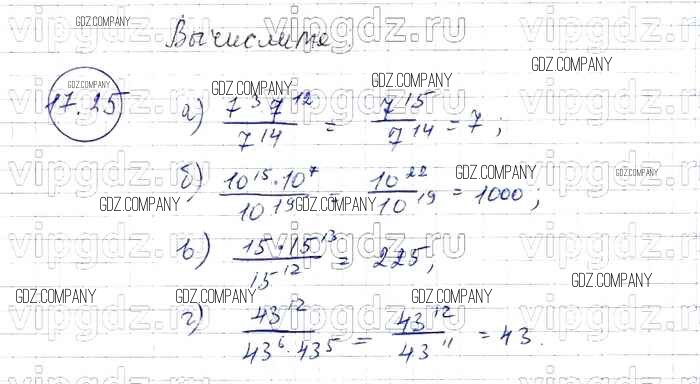 Вычислите.
17.25
а) 7³ 7¹² / 7¹⁴ = 7¹⁵ / 7¹⁴ = 7;
б) 10¹⁵ · 10⁷ / 10¹⁹ = 10²² / 10¹⁹ = 1000;
в) 15 · 15¹³ / 15¹² = 225,
г) 43¹² / 43⁶ · 43⁵ = 43¹² / 43¹¹ = 43.
GDZ.COMPANY
vipgdz.ru